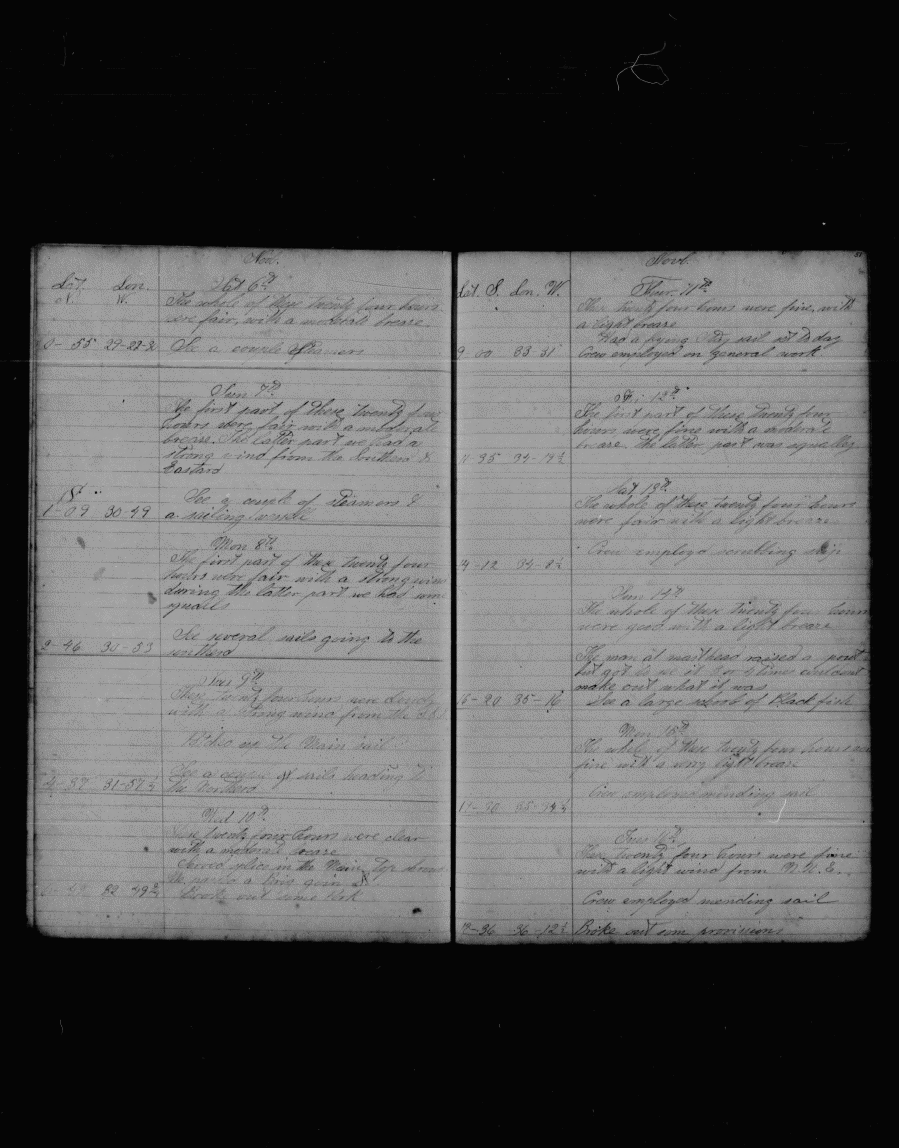 Nov.
Lat. Lon.
N. W.
Sat 6th
The whole of these twenty four hours
were fair, with a moderate breaze
0-55 29-22-2 See a couple Steamers
Sun 7th
The first part of these twenty four
hours were fair with a moderate
breaze. The latter part we had a
strong wind from the Southerd &
Eastard
S.
1-09 30-49 See a couple of Steamers &
a sailing vessell
Mon 8th
The first part of these twenty four
hours were fair with a strong wind
during the latter part we had som
squalls
See several sails going to the
2-46 30-53 northerd
Tues 9th
These twenty four hours were
with a strong wind from the
up the Main sail
See a couple of sails heading to
4-37 31-57½ the Northerd
Wed 10th
These twenty four hours were clear
with a moderate breaze
place in the Main Top
a
32-49 Broke out some
Novb.
51
Lat. S. Lon. W.
Thur. 11th
These twenty four hours were fine, with
a light breaze
Had a flying Stay sail set to day
9-00 33-31 Crew employed on general work
Fri 12th
The first part of these twenty four
hours were fine with a moderate
breaze. the latter part was squalley
11-35 34-
Sat. 13th
The whole of these twenty four hours
were fair with a light breaze
Crew employd scrubbing ship
14-12 34-
Sun 14th
The whole of these twenty four hours
were good with a light breaze
The man at masthead raised a
but got to see it 3 or 4 times could not
make out what it was
15-20 35-16 See a large school of Black fish
Mon 15th
The whole of these twenty four hours were
fine with a very light breaze
Crew employed mending sail
17-20 35-34½
Tues 16th
These twenty four hours were fine
with a light wind from N.N.E.
Crew employd mending sail
17-36 36-12½ Broke out som provisions